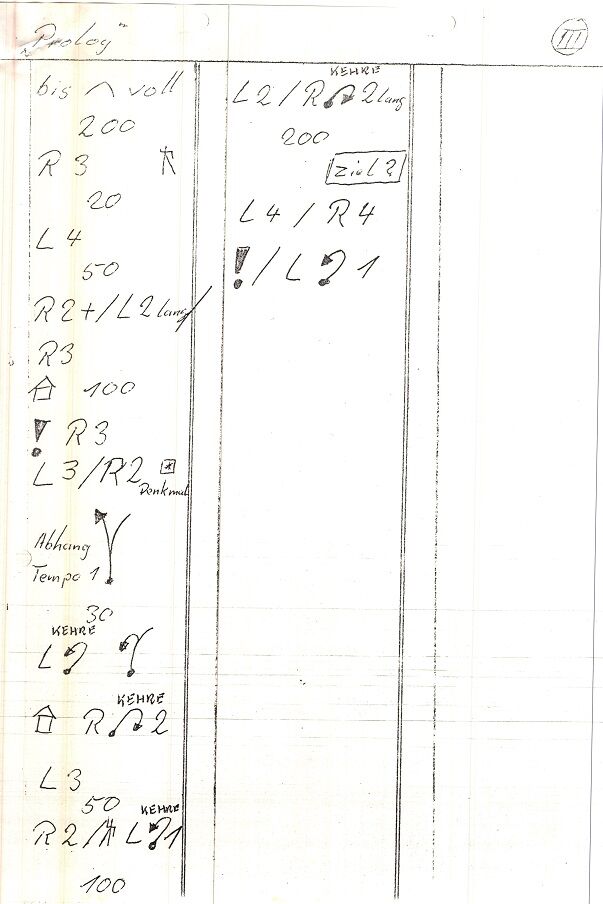 „Prolog“
III
bis voll
200
R 3
20
L 4
50
R2+/L2 lang/
R3
100
! R3
L3/R2
Denkmal
Abhang
Tempo 1
30
KEHRE
L
KEHRE
R 2
L 3
50
KEHRE
R2/ L 1
100
KEHRE
L2/R 2 lang
200
Ziel?
L4/R4
!/L 1